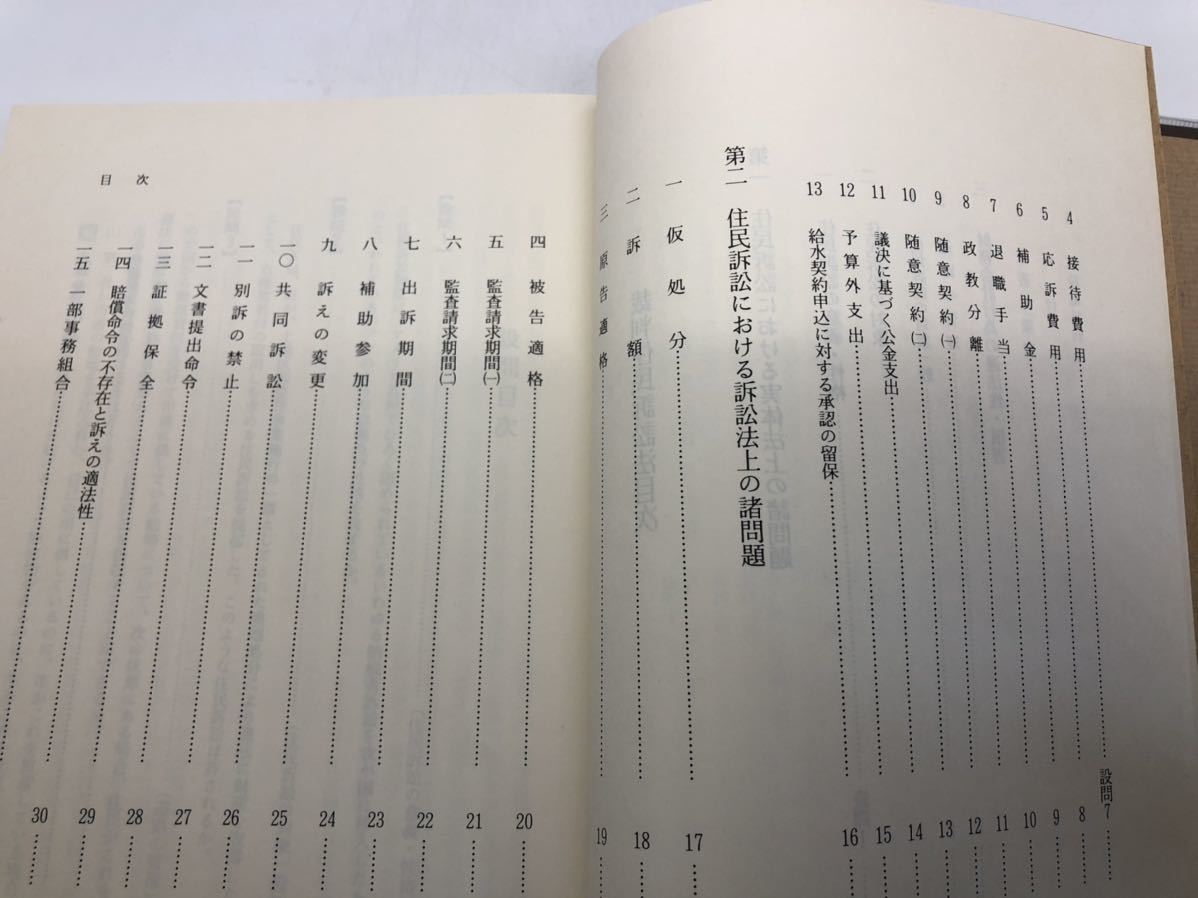 4 接待費用……設問7
5 応訴費用……8
6 補助金……9
7 退職手当……10
8 政教分離……11
9 随意契約㈠……12
10 随意契約㈡……13
11 議決に基づく公金支出……14
12 予算外支出……15
13 給水契約申込に対する承認の留保……16
第二 住民訴訟における訴訟法上の諸問題
一 仮処分……17
二 訴額……18
三 原告適格……19
四 被告適格……20
五 監査請求期間㈠……21
六 監査請求期間㈡……22
七 出訴期間……23
八 補助参加……24
九 訴えの変更……25
一〇 共同訴訟……26
一一 別訴の禁止……27
一二 文書提出命令……28
一三 証拠保全……29
一四 賠償命令の不存在と訴えの適法性……30
一五 一部事務組合……
目次